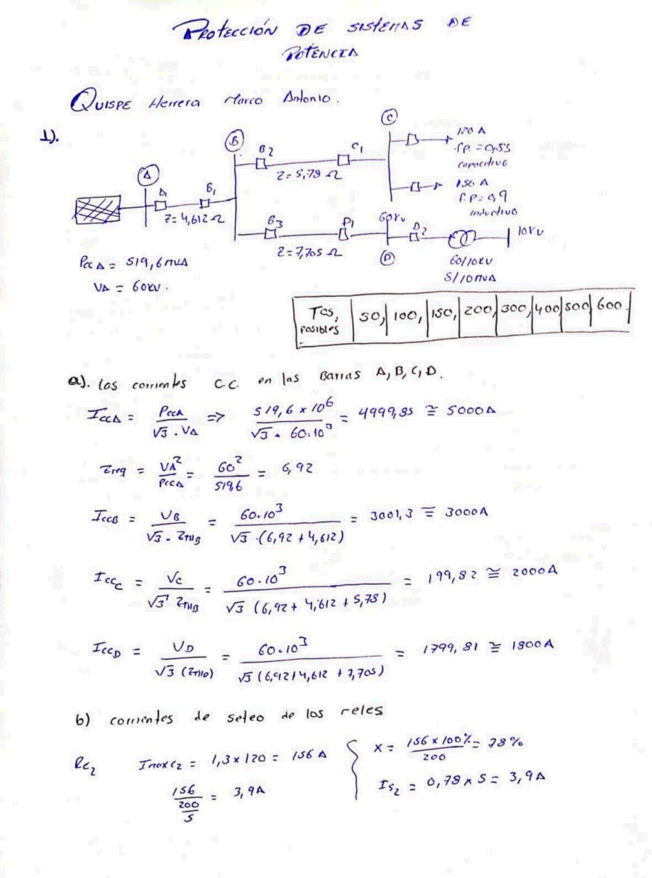 PROTECCIÓN DE SISTEMAS DE
POTENCIA
QUISPE Herrera Marco Antonio.
1).
A
A
B1
Z=4,612 Ω
PccA = 519,6 MVA
VA = 60KV.
B
B2
C1
Z=5,78 Ω
B3
D1
Z=7,705 Ω
C
120 A
f.P. = 0,95
capacitivo
156 A
f.P= 0,9
inductivo
60KV
D
D2
60/10KV
5/10MVA
10KV
TCs, posibles 50, 100, 150, 200, 300, 400 500 600.
a). Las corrientes C.C. en las Barras A, B, C, D.
IccA = PccA / √3 . VA => 519,6 x 10^6 / √3 . 60.10^3 = 4999,85 ≅ 5000A
Zreq = VA^2 / PccA = 60^2 / 519,6 = 6,92
IccB = VB / √3 . ZTHB = 60.10^3 / √3 .(6,92 + 4,612) = 3001,3 ≅ 3000A
IccC = Vc / √3 ZTHB = 60.10^3 / √3 (6,92 + 4,612 + 5,78) = 199,82 ≅ 2000A
IccD = VD / √3 (ZTHD) = 60.10^3 / √3 (6,92+4,612 + 7,705) = 1799,81 ≅ 1800A
b) corrientes de seteo de los reles
Rc2 Imaxc2 = 1,3 x 120 = 156 A
156 / 200/5 = 3,9A
X = 156 x 100% / 200 = 78%
Is2 = 0,78 x 5 = 3,9A